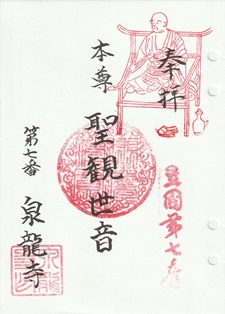 奉拝
本尊
聖観世音
第七番
泉龍寺